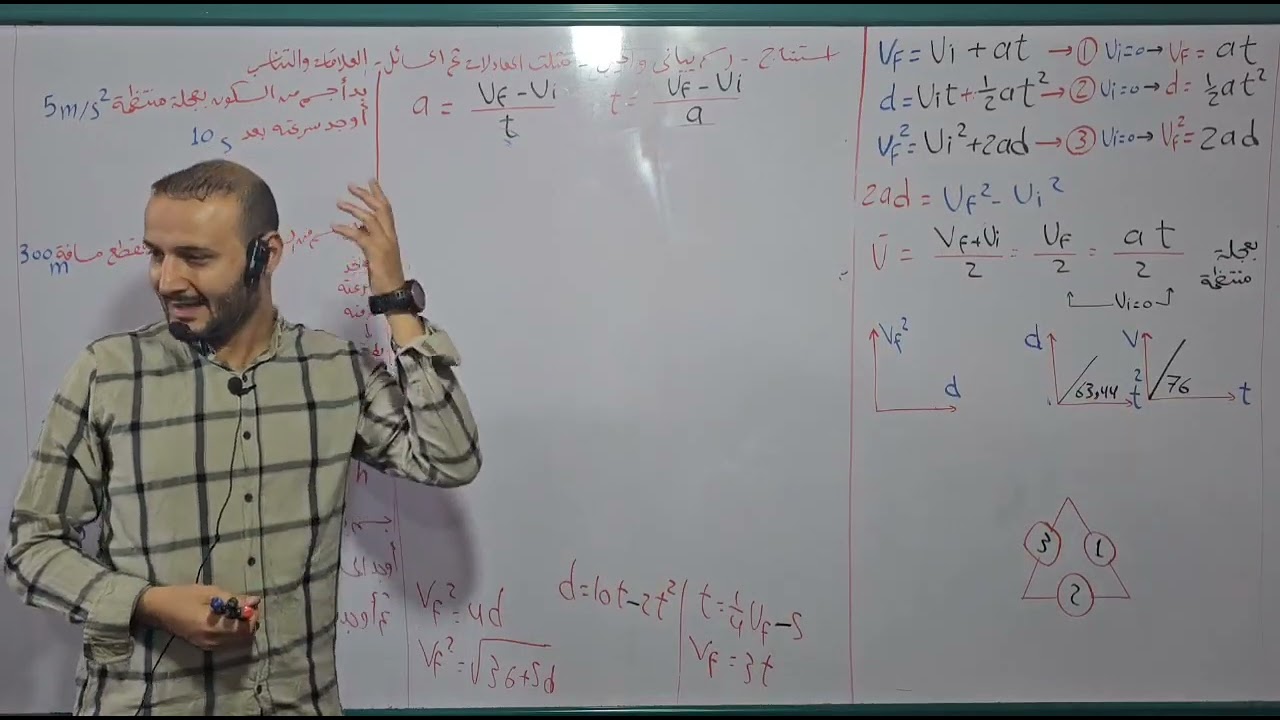 استنتاج - رسم بياني و الميل - مثلث المعادلات ثم المسائل - العلاقات والتناسب
بدأ جسم من السكون بعجلة منتظمة 5m/s²
أوجد سرعته بعد 10 s
مسافة 300 m
a = (Vf - Vi) / t    t = (Vf - Vi) / a
Vf² = 4d
Vf² = √(36+5d)
d = 10t - 2t²
t = 1/4 Vf - 5
Vf = 3t
Vf = Vi + at → ① Vi=0 → Vf = at
d = Vit + ½at² → ② Vi=0 → d = ½at²
Vf² = Vi² + 2ad → ③ Vi=0 → Vf² = 2ad
2ad = Vf² - Vi²
V̄ = (Vf+Vi)/2 = Vf/2 = at/2 بعجلة منتظمة
Vi=0
Vf² d
d 63,44 t²
V 76 t
3 1
2